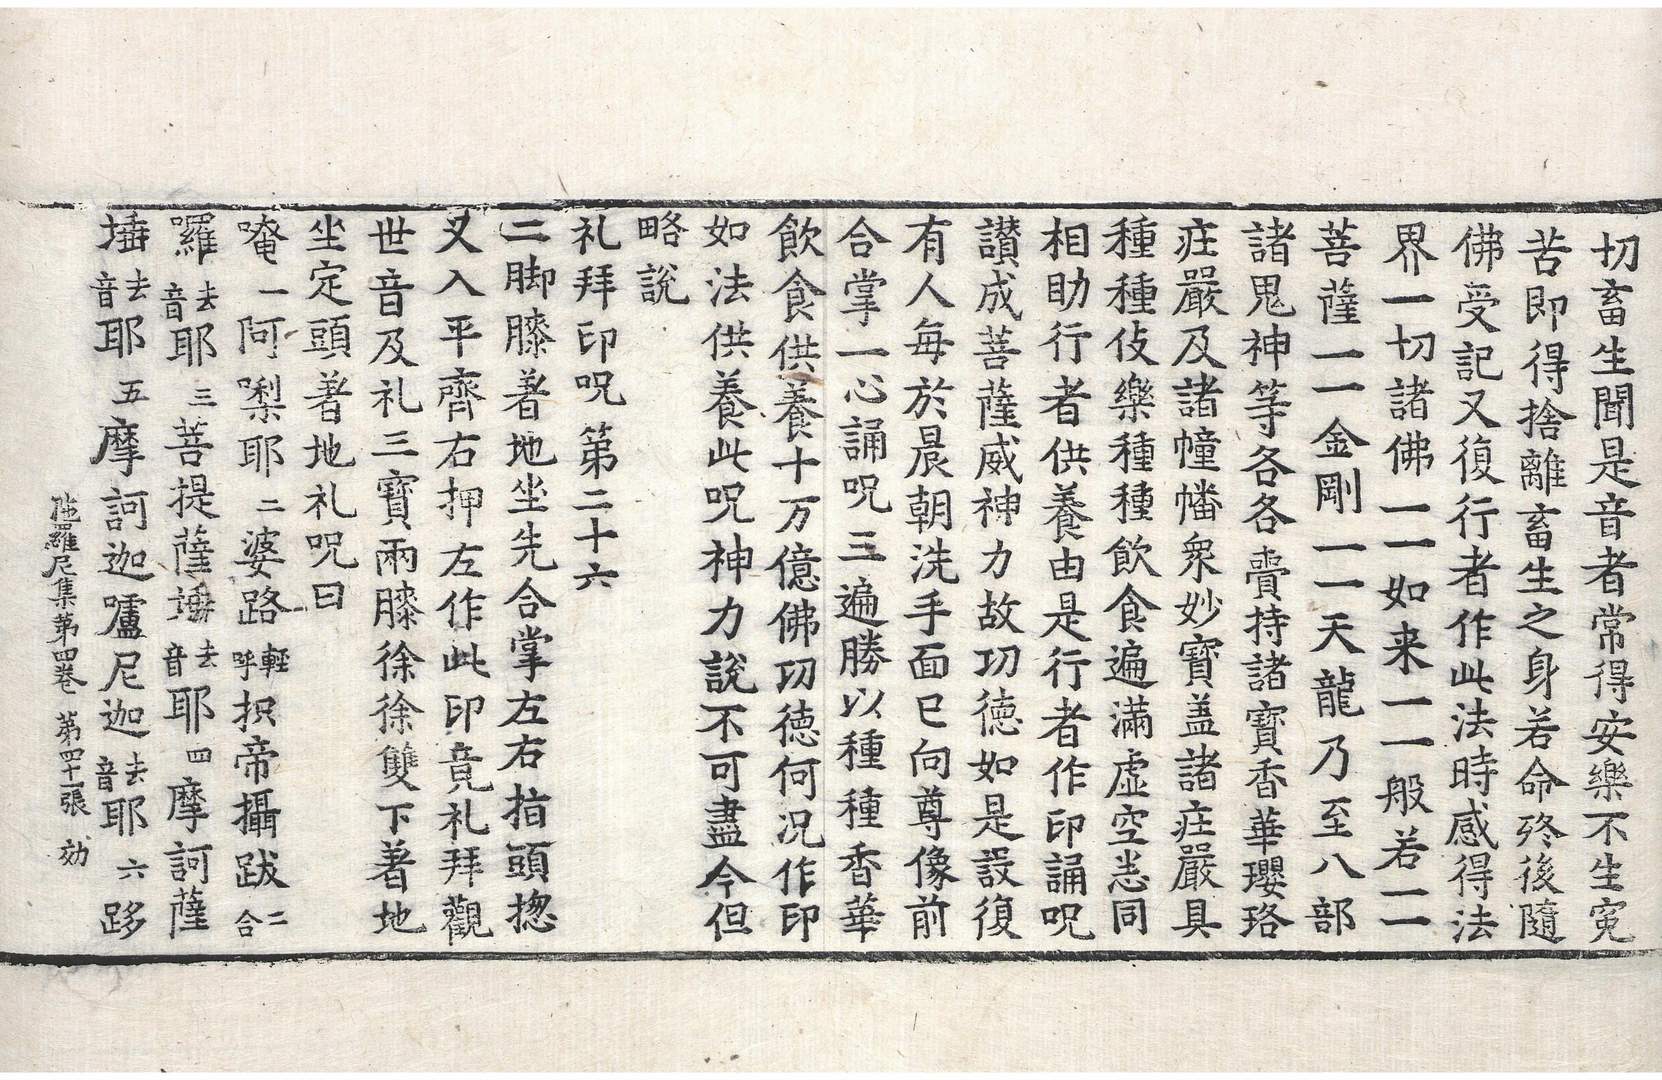 切畜生聞是音者常得安樂不生寃
苦即得捨離畜生之身若命終後隨
佛受記又復行者作此法時感得法
界一切諸佛一一如来一一般若一一
菩薩一一金剛一一天龍乃至八部
諸鬼神等各各賷持諸寶香華瓔珞
庄嚴及諸幢幡衆妙寶盖諸庄嚴具
種種伎樂種種飲食遍滿虛空悉同
相助行者供養由是行者作印誦呪
讃成菩薩威神力故功德如是設復
有人每於晨朝洗手面已向尊像前
合掌一心誦呪三遍勝以種種香華
飲食供養十万億佛功德何況作印
如法供養此呪神力說不可盡今但
略說
礼拜印呪第二十六
二脚膝著地坐先合掌左右指頭揔
叉入平齊右押左作此印竟礼拜觀
世音及礼三寶兩膝徐徐雙下著地
坐定頭著地礼呪曰
唵一阿㗚耶二婆路輕呼抧帝攝跋二合
羅去音耶三菩提薩埵去音耶四摩訶薩
埵去音耶五摩訶迦嚧尼迦去音耶六跢
陁羅尼集第四卷 第四十一張 効